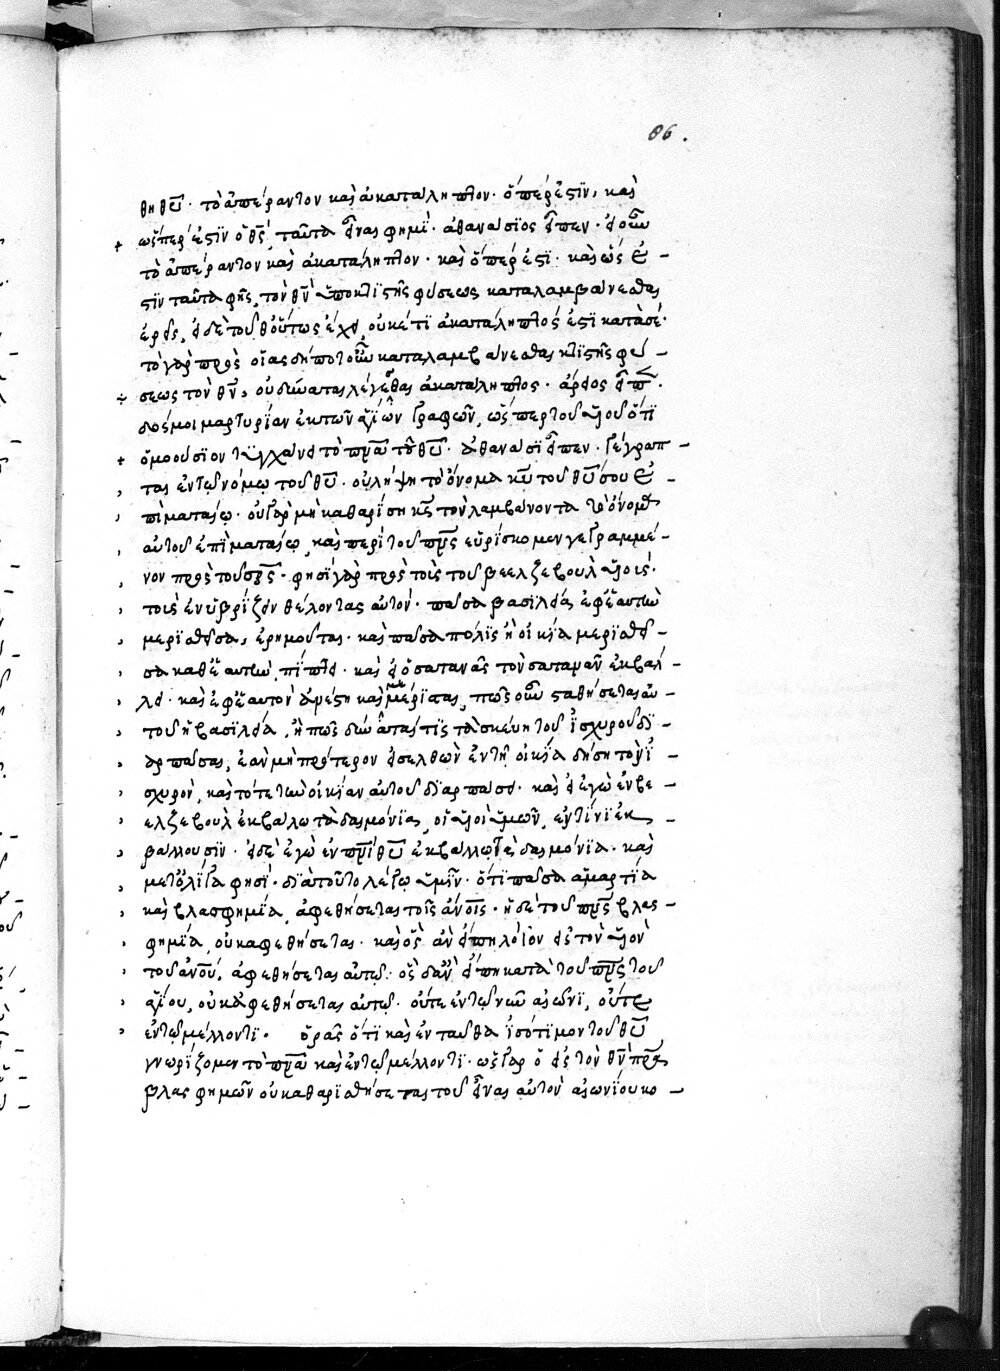 86.
θη θῡ· τὸ ἀπέραντον καὶ ἀκατάληπτον· ὅπέρ ἐστϊν, καὶ
+ ὥσπέρ ἐστϊν ὁ θς̄, ταῦτα εἶναι φημϊ· ἀθανάσϊος εἶπεν· εἰ οὖν
τὸ ἀπέραντον καὶ ἀκατάληπτον· καὶ ὅπέρ ἐστϊ· καὶ ὥς ἐ –
στϊν ταῦτα φῂς, τὸν θν̄ ὑπο κτϊστῆς φύσεως καταλαμβάνεσθαι
ἐρεῖς, εἰ δὲ τοῦθ οὕτως ἔχει, οὐκέτϊ ἀκατάληπτός ἐστϊ κατὰ σέ·
τὸ γὰρ πρὸς οἵας δήποτ οὖν καταλαμβάνεσθαι κτϊστῆς φύ –
σεως τὸν θν̄, οὐ δύναται λέγεσθαι ἀκατάληπτος· ἄρειος εἶπ·
δός μοι μαρτυρίαν ἐκ τῶν ἁγίων γραφῶν, ὥσπερ τοῦ υἱοῦ ὅτϊ
+ ὁμοούσϊον τυγχάνει τὸ πνᾱ τοῦ θῡ· ἀθανάσϊ εἶπεν· γέγραπ –
, ται ἐν τῷ νόμῳ τοῦ θῡ· οὐ λήψη τὸ ὄνομα κῡ τοῦ θῡ σου ἐ –
, πὶ ματαίῳ· οὐ γὰρ μὴ καθαρίση κς̄ τὸν λαμβάνοντα τὸ ὄνομα
, αὐτοῦ ἐπὶ ματαίῳ, καὶ περὶ τοῦ πνς̄ εὑρίσκομεν γεγραμμέ –
, νον πρὸς τοῦ σρ̄ς· φησὶ γὰρ πρὸς τοὺς τοῦ βεελζεβοὺλ υἱούς·
, τοὺς ἐνυβρίζειν θέλοντας αὐτόν· πᾶσα βασϊλεία ἐφ ἑαυτὴν
, μερϊσθεῖσα, ἐρημοῦται· καὶ πᾶσα πόλϊς ἢ οἰκϊα μερϊσθεῖ –
, σα καθ ἑαυτὴν, πίπτει· καὶ εἰ ὁ σατανᾶς τὸν σατανᾶν ἐκβάλ –
, λει· καὶ ἐφ ἑαυτὸν ἀνέστη καὶ μεμέρϊσται, πῶς οὖν σταθήσεται αὐ –
, τοῦ ἡ βασϊλεία, ἢ πῶς δύναταί τϊς τὰ σκεύη τοῦ ἰσχυροῦ δϊ –
, αρπάσαι, ἐὰν μὴ πρότερον εἰσελθὼν ἐν τῇ οἰκϊα δήση τὸν ἰ –
, σχυρὸν, καὶ τότε τὴν οἰκίαν αὐτοῦ δϊαρπάσει· καὶ εἰ ἐγὼ ἐν βε –
, ελζεβοὺλ ἐκβάλω τὰ δαιμόνϊα, οἱ υἱοὶ ὑμῶν, ἐν τίνϊ ἐκ –
, βάλλουσϊν· εἰ δὲ ἐγὼ ἐν πνῑ θῡ ἐκβάλλω τὰ δαιμόνϊα· καὶ
, μετ ὀλίγα φησί· δϊὰ τοῦτο λέγω ὑμῖν· ὅτϊ πᾶσα ἁμαρτϊα
, καὶ βλασφημϊα, ἀφεθήσεται τοῖς ἀνοῑς· ἡ δὲ τοῦ πνς̄ βλας –
, φημϊα, οὐκ ἀφεθήσεται· καὶ ὃς ἂν εἴπη λόγον εἰς τὸν υἱὸν
, τοῦ ἀνοῡ, ἀφεθήσεται αὐτῷ· ὃς δ ἂν εἴπη κατὰ τοῦ πνς̄ τοῦ
, ἁγίου, οὐκ ἀφεθήσεται αὐτῷ· οὔτε ἐν τῷ νῦν αἰῶνϊ, οὔτε
, ἐν τῷ μέλλοντϊ· ὁρᾷς ὅτϊ καὶ ἐνταῦθα ἰσότϊμον τοῦ θῡ
γνωρίζομεν τὸ πνᾱ καὶ ἐν τῷ μέλλοντϊ· ὡς γὰρ ὁ εἰς τὸν θν̄ πρα
βλασφημῶν οὐ καθαρϊσθήσεται τοῦ εἶναι αὐτὸν αἰωνίου κο –